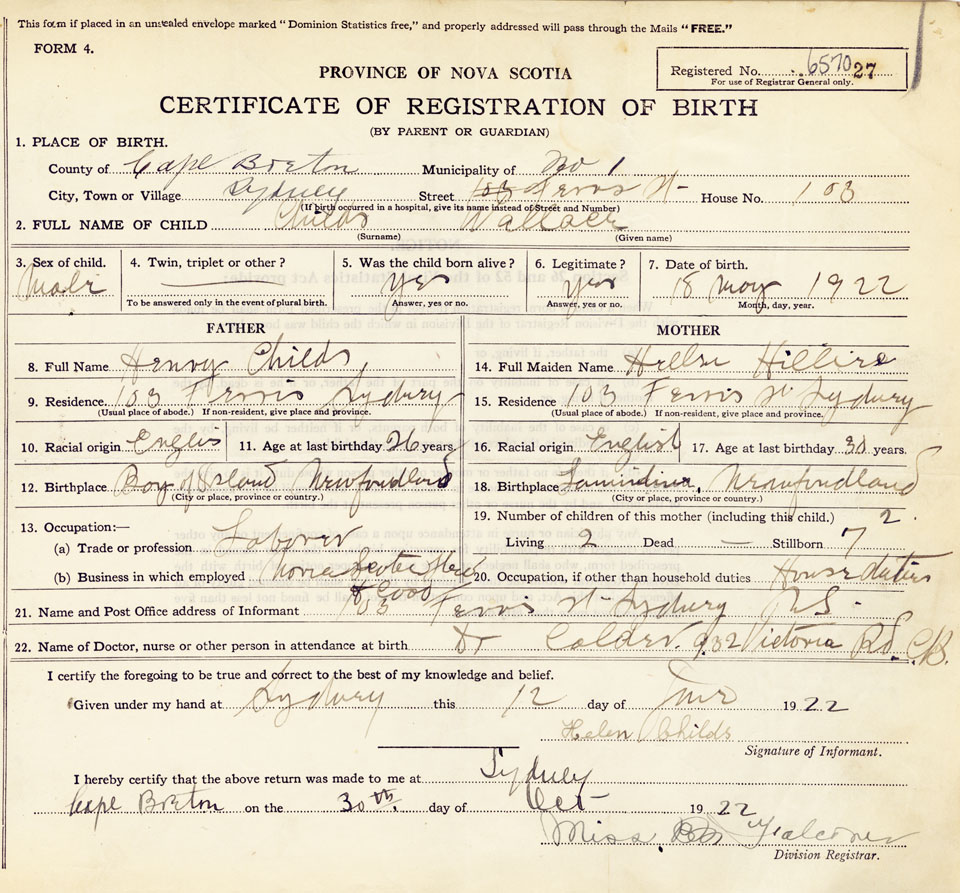 This form if placed in an unsealed envelope marked "Dominion Statistics free," and properly addressed will pass through the Mails "FREE."
FORM 4.
Registered No. 6570 27
For use of Registrar General only.
PROVINCE OF NOVA SCOTIA
CERTIFICATE OF REGISTRATION OF BIRTH
(BY PARENT OR GUARDIAN)
1. PLACE OF BIRTH.
County of Cape Breton Municipality of No 1
City, Town or Village Sydney Street 103 Ferris St- House No. 103
(If birth occurred in a hospital, give its name instead of Street and Number)
2. FULL NAME OF CHILD Childs Wallace
(Surname) (Given name)
3. Sex of child. Male 4. Twin, triplet or other? 5. Was the child born alive? Yes 6. Legitimate? Yes 7. Date of birth. 18 May 1922
To be answered only in the event of plural birth. Answer, yes or no. Answer, yes or no. Month, day, year.
FATHER MOTHER
8. Full Name Henry Childs 14. Full Maiden Name
9. Residence 103 Ferris Sydney 15. Residence 103 Ferris St Sydney
(Usual place of abode.) If non-resident, give place and province. (Usual place of abode.) If non-resident, give place and province.
10. Racial origin Englis 11. Age at last birthday 26 years 16. Racial origin English 17. Age at last birthday 30 years.
12. Birthplace Bay of Island Newfoundland 18. Birthplace Newfoundland
(City or place, province or country.) (City or place, province or country.)
13. Occupation:— 19. Number of children of this mother (including this child.) 2.
(a) Trade or profession Laborer Living 2 Dead — Stillborn 7
(b) Business in which employed Nova Scotia Steel & Coal 20. Occupation, if other than household duties House duties
21. Name and Post Office address of Informant 103 Ferris St Sydney NS.
22. Name of Doctor, nurse or other person in attendance at birth Dr Calder. 932 Victoria Rd. C.B.
I certify the foregoing to be true and correct to the best of my knowledge and belief.
Given under my hand at Sydney this 12 day of 1922
Helen Childs
Signature of Informant.
I hereby certify that the above return was made to me at Sydney
Cape Breton on the 30th. day of Oct 1922
Miss Falconer
Division Registrar.